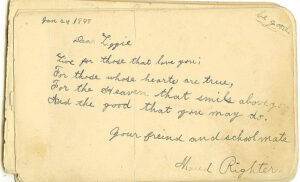 Jan 24 1898
be good
Dear Lizzie
Live for those that love you;
For those whose hearts are true,
For the Heaven that smils above you
And the good that you may do.
Your freind and schoolmate
Maud Righter